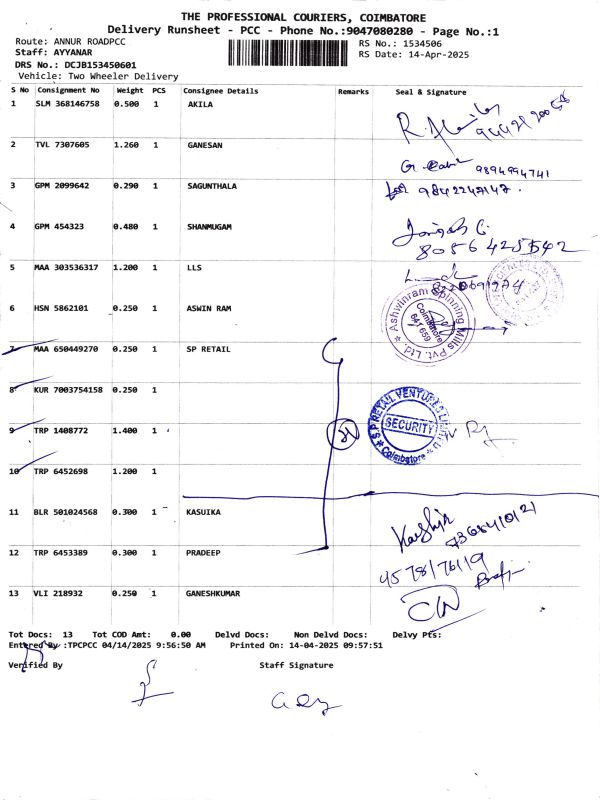 THE PROFESSIONAL COURIERS, COIMBATORE
Delivery Runsheet - PCC - Phone No.:9047080280 - Page No.:1
Route: ANNUR ROADPCC RS No.: 1534506
Staff: AYYANAR RS Date: 14-Apr-2025
DRS No.: DCJB153450601
Vehicle: Two Wheeler Delivery
S No Consignment No Weight PCS Consignee Details Remarks Seal & Signature
1 SLM 368146758 0.500 1 AKILA
2 TVL 7307605 1.260 1 GANESAN 9894994741
3 GPM 2099642 0.290 1 SAGUNTHALA 9842247147.
4 GPM 454323 0.480 1 SHANMUGAM 8056425542
5 MAA 303536317 1.200 1 LLS
6 HSN 5862101 0.250 1 ASWIN RAM Ashwinram Spinning Mills Pvt. Ltd. Coimbatore 641 659
7 MAA 650449270 0.250 1 SP RETAIL
8 KUR 7003754158 0.250 1
9 TRP 1408772 1.400 1 S P RETAIL VENTURES LIMITED SECURITY Coimbatore
10 TRP 6452698 1.200 1
11 BLR 501024568 0.300 1 KASUIKA
12 TRP 6453389 0.300 1 PRADEEP
13 VLI 218932 0.250 1 GANESHKUMAR
Tot Docs: 13 Tot COD Amt: 0.00 Delvd Docs: Non Delvd Docs: Delvy Pts:
Entered By :TPCPCC 04/14/2025 9:56:50 AM Printed On: 14-04-2025 09:57:51
Verified By Staff Signature